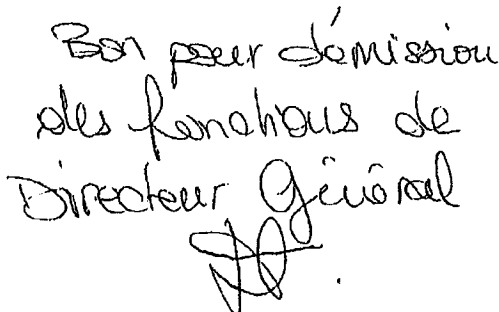 Bon pour démission
des fonctions de
Directeur Général